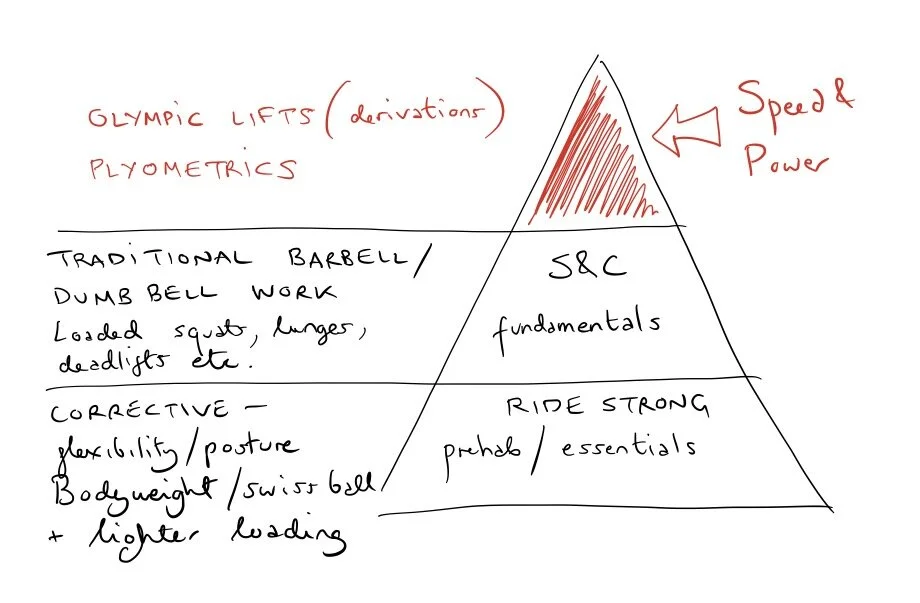 OLYMPIC LIFTS (derivations)
PLYOMETRICS
Speed &
Power
TRADITIONAL BARBELL /
DUMBBELL WORK
Loaded squats, lunges,
deadlifts etc.
S&C
fundamentals
CORRECTIVE –
flexibility / posture
Bodyweight / swiss ball
+ lighter loading
RIDE STRONG
prehab / essentials